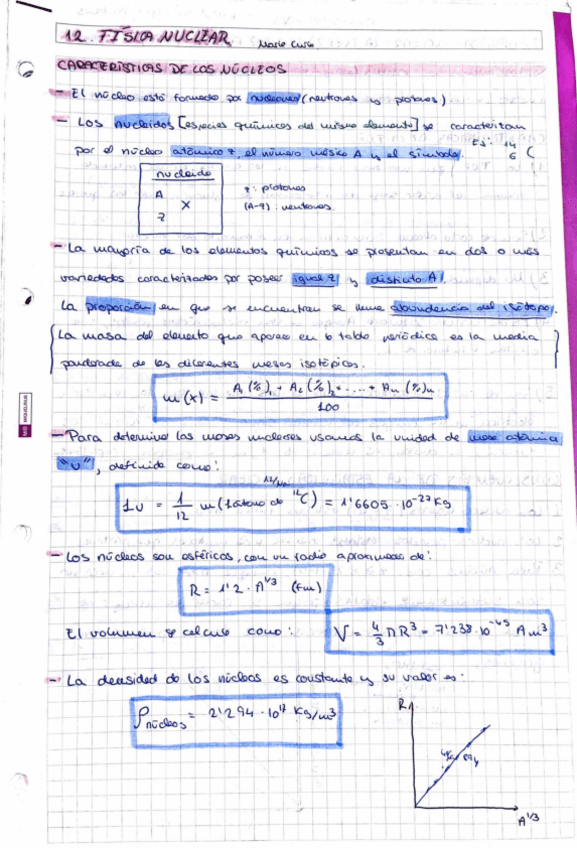 12. FÍSICA NUCLEAR Marie Curie
CARACTERÍSTICAS DE LOS NÚCLEOS
- El núcleo está formado por nucleones (neutrones y protones)
- Los nucleidos [especies químicas del mismo elemento] se caracterizan
por el núcleo atómico z, el número másico A y el símbolo. Ej: 14 6 C
nucleido
A
X
z
z: protones
(A-z): neutrones
- La mayoría de los elementos químicos se presentan en dos o más
variedades caracterizados por poseer igual z y distinto A.
La proporción en que se encuentran se llama abundancia del isótopo.
La masa del elemento que aparece en la tabla periódica es la media
ponderada de las diferentes masas isotópicas.
m(x) = A₁(%)₁ + A₂(%)₂ + .... + Aₙ(%)ₙ / 100
- Para determinar las masas nucleares usamos la unidad de masa atómica
"u", definida como:
1u = 1/12 m(1átomo de ¹²C) = 1'6605 · 10⁻²⁷ Kg
- Los núcleos son esféricos, con un radio aproximado de:
R = 1'2 · A^1/3 (fm)
El volumen se calcula como: V = 4/3 π R³ = 7'238·10⁻⁴⁵ A m³
- La densidad de los núcleos es constante y su valor es:
ρ núcleos = 2'294 · 10¹⁷ Kg/m³
R
A^1/3